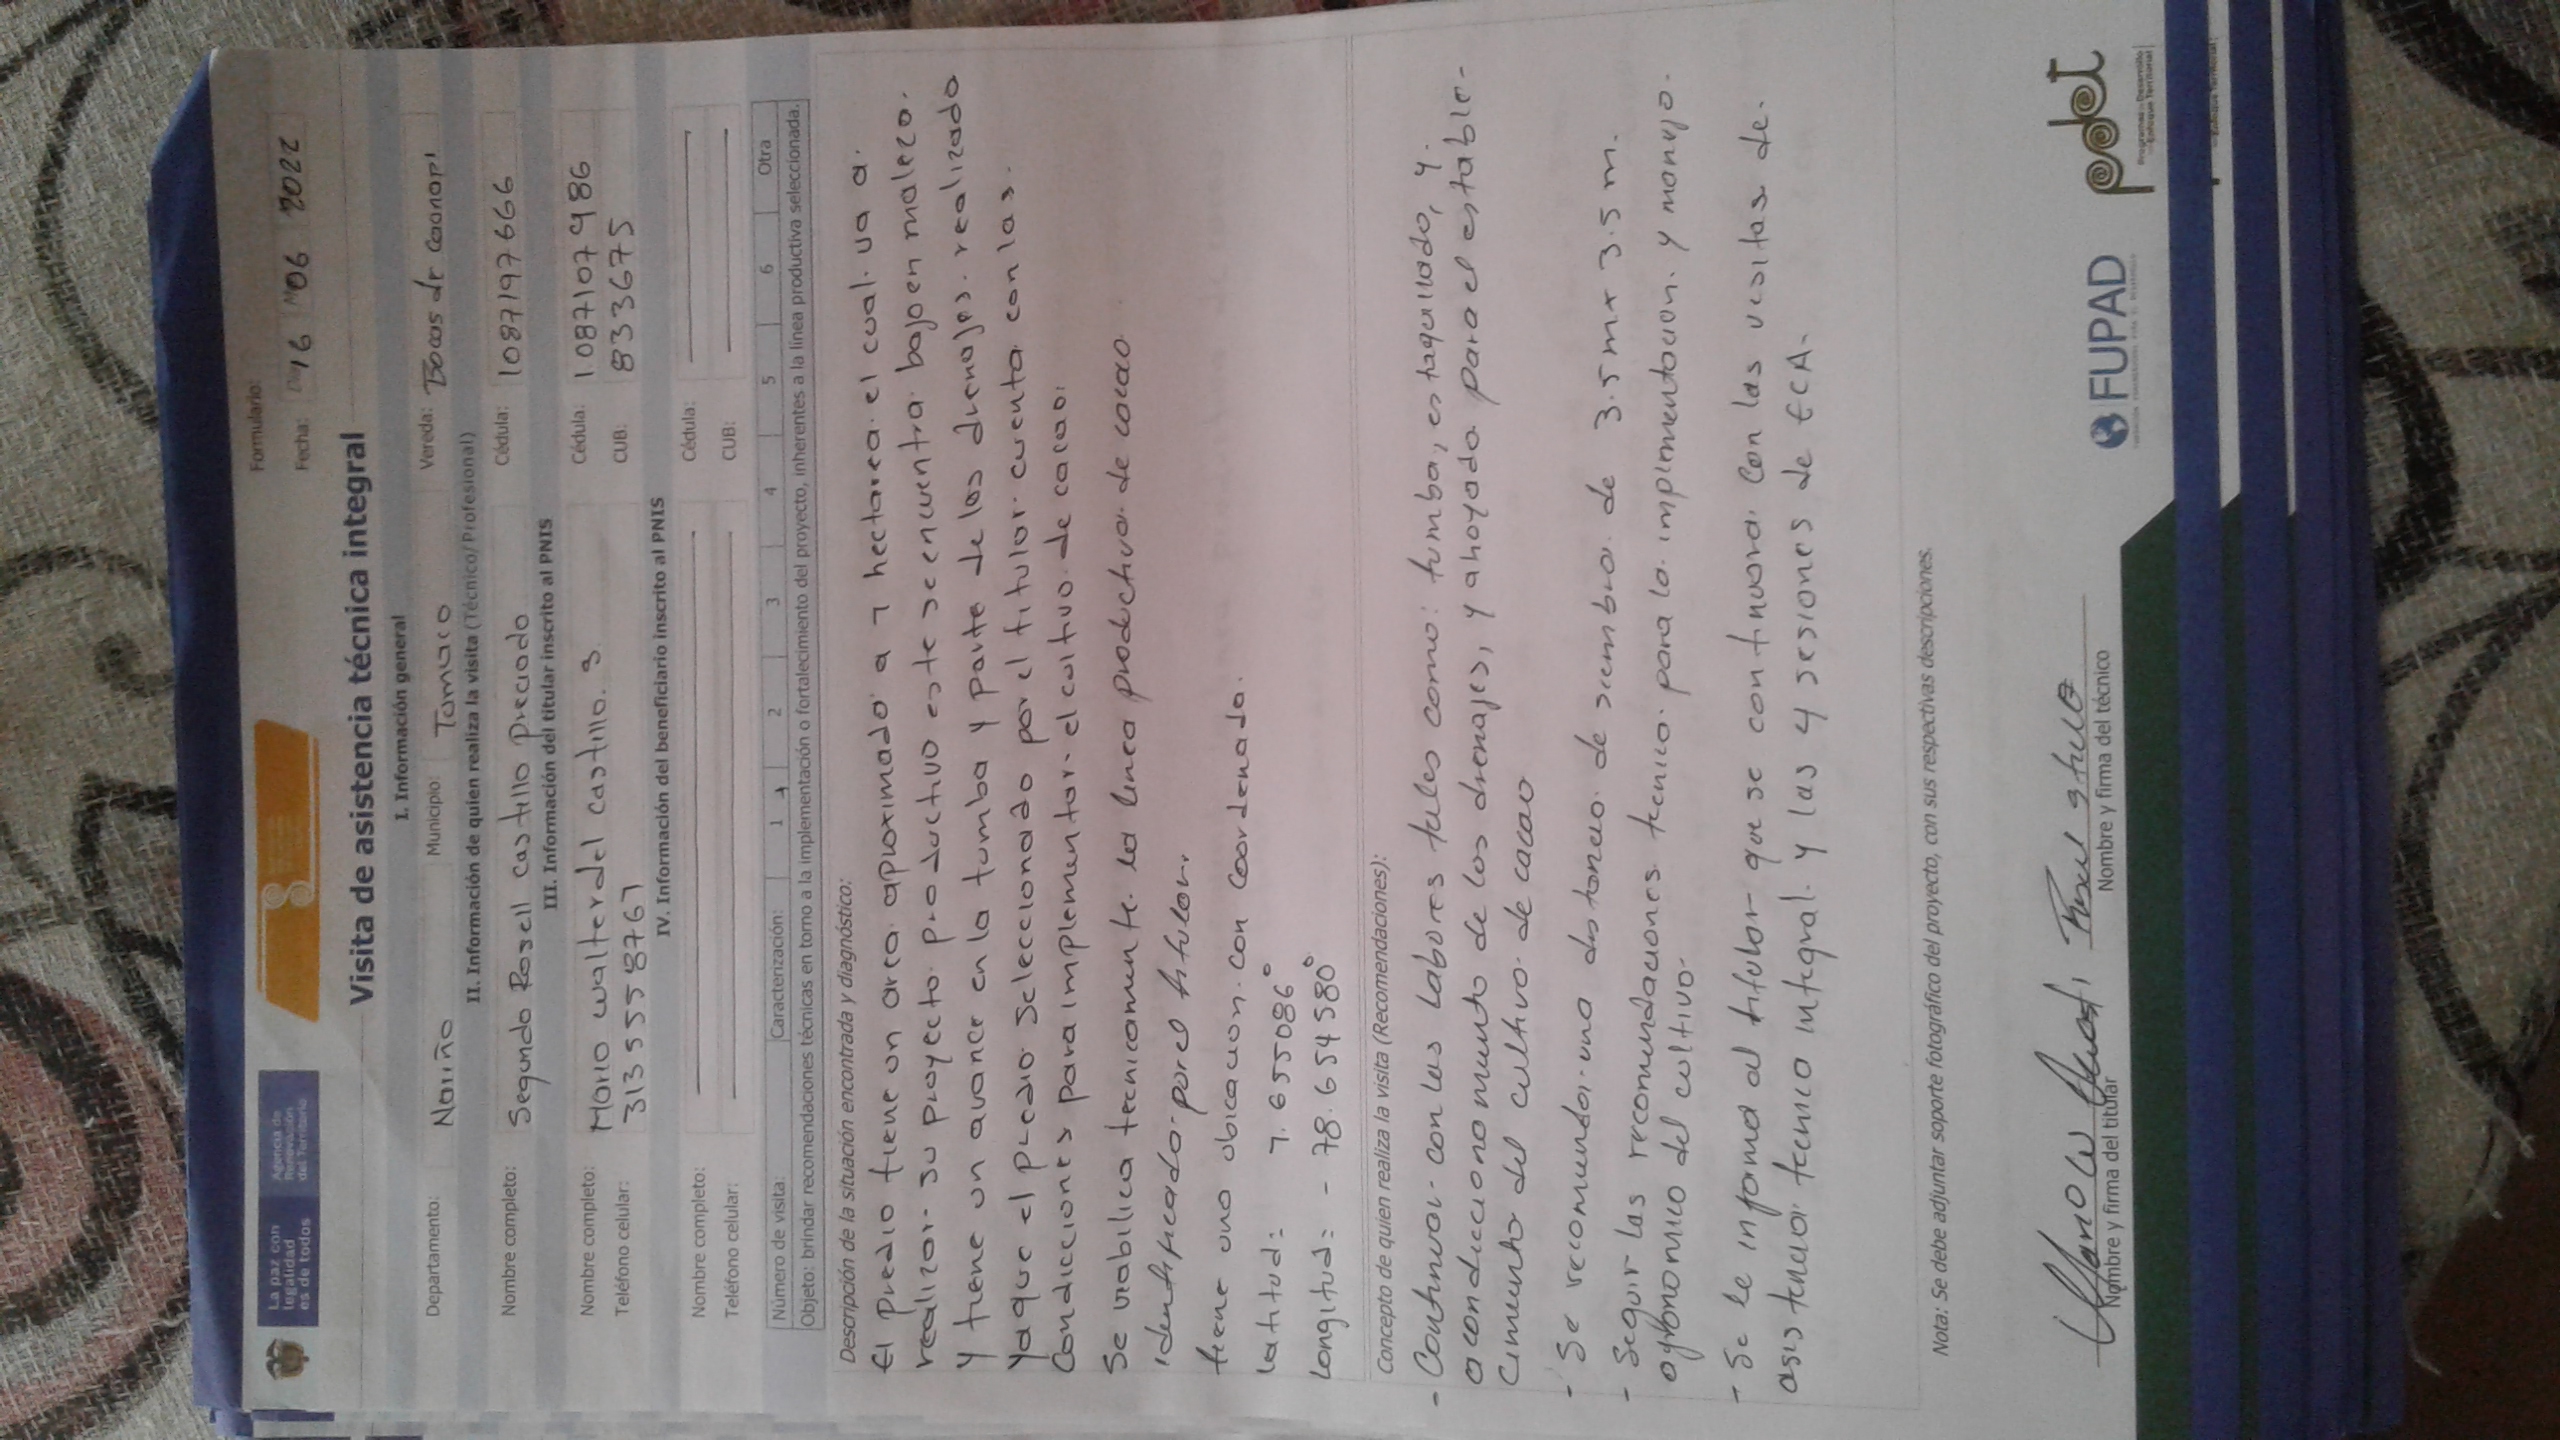 La paz con
legalidad
es de todos
Agencia de
Renovación
del Territorio
Formulario:
Fecha: Día 16 M 06 2022
Visita de asistencia técnica integral
I. Información general
Departamento: Nariño Municipio: Tumaco Vereda: Bocas de Canapi
II. Información de quien realiza la visita (Técnico/Profesional)
Nombre completo: Segundo Rosell Castillo Preciado Cédula: 1087197666
III. Información del titular inscrito al PNIS
Nombre completo: Mario Walter del Castillo. S Cédula: 1087107986
Teléfono celular: 3135558767 CUB: 833675
IV. Información del beneficiario inscrito al PNIS
Nombre completo: Cédula:
Teléfono celular: CUB:
Número de visita: Caracterización: 1 2 3 4 5 6 Otra
Objeto: brindar recomendaciones técnicas en torno a la implementación o fortalecimiento del proyecto, inherentes a la línea productiva seleccionada.
Descripción de la situación encontrada y diagnóstico:
El predio tiene un area aproximado a 1 hectarea. el cual. va a.
realizar. su proyecto. productivo este se encuentra. bajo en maleza.
y tiene un avance en la tumba y parte de los drenajes. realizado
ya que el predio. Seleccionado por el titular. cuenta con las.
Condiciones para implementar. el cultivo. de cacao.
Se viabilica tecnicamente. la linea productiva. de cacao.
identificado. por el titular.
tiene una ubicacion. con coordenada.
latitud: 1.655086°
Longitud: - 78.654580°
Concepto de quien realiza la visita (Recomendaciones):
- Continuar. con las labores tales como: tumba, estaquillado, y.
acondicionamiento de los drenajes, y ahoyado para el estable-
cimiento del cultivo. de cacao
- Se recomendar. una distancia. de siembra. de 3.5 m x 3.5 m.
- Seguir las recomendaciones tecnico. para la. implementacion. y manejo.
agronomico del cultivo.
- Se le informa al titular que se continuara. Con las visitas de.
asistencia. tecnica integral. y las 4 sesiones de ECA.
Nota: Se debe adjuntar soporte fotográfico del proyecto, con sus respectivas descripciones.
Nombre y firma del titular
Nombre y firma del técnico
FUPAD
pdet
Programas de Desarrollo
con Enfoque Territorial